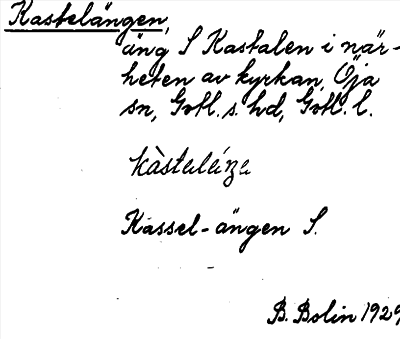 Kastelängen,
äng S Kastalen i när-
heten av kyrkan, Öja
sn, Gotl. s. hd, Gotl. l.
Kassel-ängen S.
B. Bolin 1929